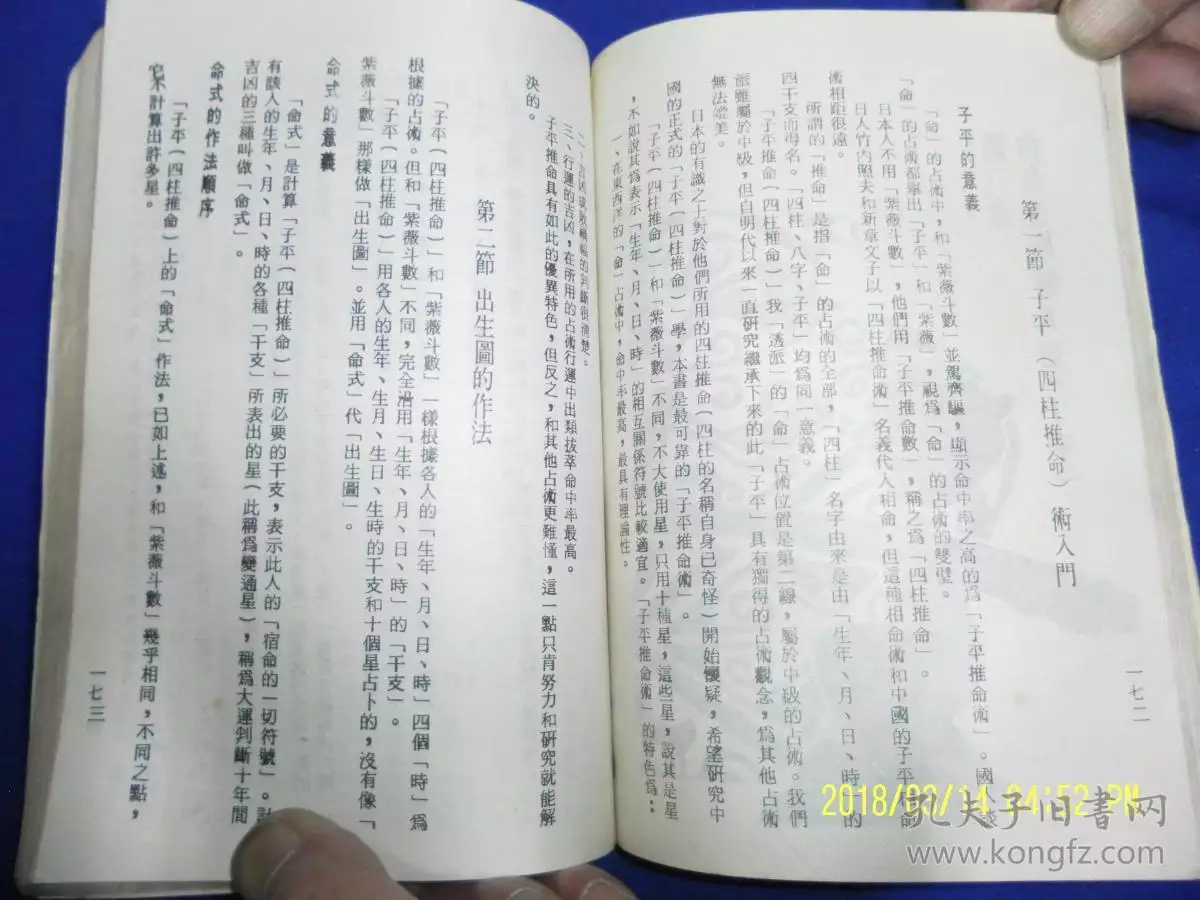 第一節 子平（四柱推命）術入門
子平的意義
「命」的占術中，和「紫薇斗數」並駕齊驅，顯示命中率之高的爲「子平推命術」。國人談
「命」的占術都舉出「子平」和「紫薇」，視爲「命」的占術的雙璧。
日本人不用「紫薇斗數」，他們用「子平推命數」，稱之爲「四柱推命」。
日人竹內照夫和新章文子以「四柱推命術」名義代人相命，但這種相命術和中國的子平
術相距很遠。
所謂的「推命」是指「命」的占術的全部，「四柱」名字由來是由「生年、月、日、時」的
四干支而得名。「四柱、八字、子平」均爲同一意義。
「子平推命（四柱推命）」我「透派」的「命」占術位置是第二線，屬於中級的占術。我們
派雖屬於中級，但自明代以來一直研究繼承下來的此「子平」具有獨得的占術觀念，爲其他占術
無法媲美。
日本的有識之士對於他們所用的四柱推命（四柱的名稱自身已奇怪）開始懷疑，希望研究中
國的正式的「子平（四柱推命）學，本書是最可靠的「子平推命術」。
「子平（四柱推命）」和「紫薇斗數」不同，不大使用星，只用十種星，這些星，說其是星
，不如說其爲表示「生年、月、日、時」的相互關係符號比較適宜。「子平推命術」的特色爲：
一、在東西洋的「命」占術中，命中率最高，最具有理論性。
一七二
二、吉凶成敗
的判斷很清楚。
三、行運的吉凶，在所用的占術行運中出類拔萃命中率最高。
子平推命具有如此的優異特色，但反之，和其他占術更難懂，這一點只肯努力和研究就能解
決的。
第二節 出生圖的作法
「子平（四柱推命）」和「紫薇斗數」一樣根據各人的「生年、月、日、時」四個「時」爲
根據的占術。但和「紫薇斗數」不同，完全沿用「生年、月、日、時」的「干支」。
「子平（四柱推命）」用各人的生年、生月、生日、生時的干支和十個星占卜的，沒有像「
紫薇斗數」那樣做「出生圖」。並用「命式」代「出生圖」。
命式的意義
「命式」是計算「子平（四柱推命）」所必要的干支，表示此人的「宿命的一切符號」。計
有該人的生年、月、日、時的各種「干支」所表出的星（此稱爲變通星），稱爲大運判斷十年間
吉凶的三種叫做「命式」。
命式的作法順序
「子平（四柱推命）上的「命式」作法，已如上述，和「紫薇斗數」幾乎相同，不同之點，
它不計算出許多星。
一七三
2018/03/14 04:52 PM
孔夫子旧书网
www.kongfz.com